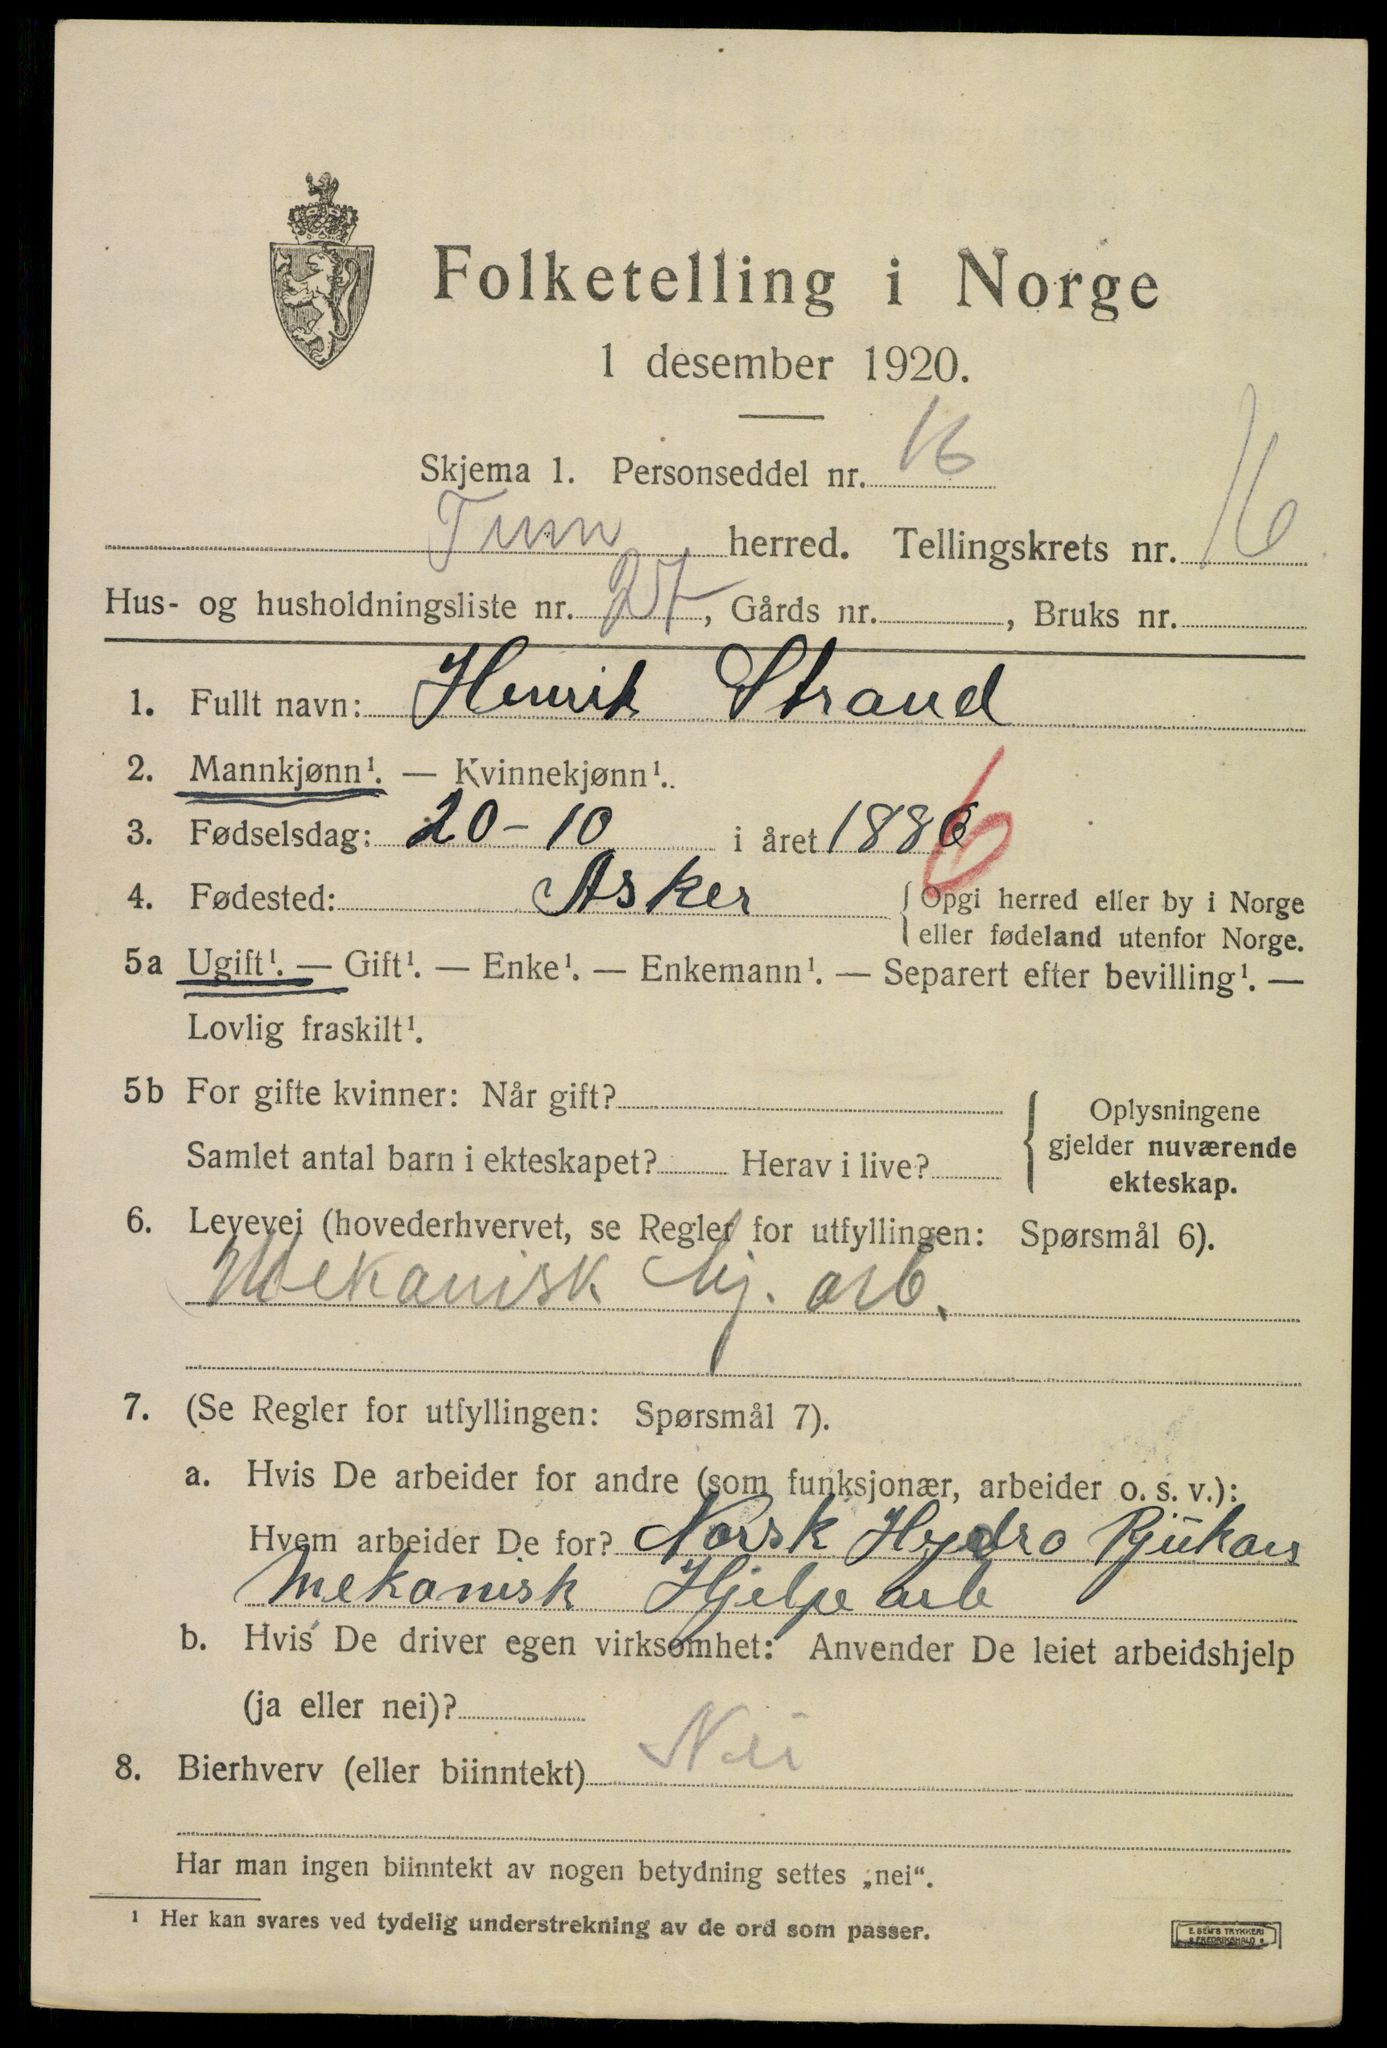 Folketelling i Norge
1 desember 1920.
Skjema 1. Personseddel nr. 16
Tinn herred. Tellingskrets nr. 16
Hus- og husholdningsliste nr. 27, Gårds nr. , Bruks nr.
1. Fullt navn: Henrik Strand
2. Mannkjønn¹. — Kvinnekjønn¹.
3. Fødselsdag: 20-10 i året 1886 6
4. Fødested: Asker { Opgi herred eller by i Norge
eller fødeland utenfor Norge.
5a Ugift¹. — Gift¹. — Enke¹. — Enkemann¹. — Separert efter bevilling¹. —
Lovlig fraskilt¹.
5b For gifte kvinner: Når gift?
Samlet antal barn i ekteskapet? Herav i live?
Oplysningene
gjelder nuværende
ekteskap.
6. Levevei (hovederhvervet, se Regler for utfyllingen: Spørsmål 6).
Mekanisk hj. arb.
7. (Se Regler for utfyllingen: Spørsmål 7).
a. Hvis De arbeider for andre (som funksjonær, arbeider o. s. v.):
Hvem arbeider De for? Norsk Hydro Rjukan
Mekanisk Hjelpe arb
b. Hvis De driver egen virksomhet: Anvender De leiet arbeidshjelp
(ja eller nei)?
8. Bierhverv (eller biinntekt) Nei
Har man ingen biinntekt av nogen betydning settes „nei“.
¹ Her kan svares ved tydelig understrekning av de ord som passer.
E. SEM'S TRYKKERI
FREDRIKSHALD